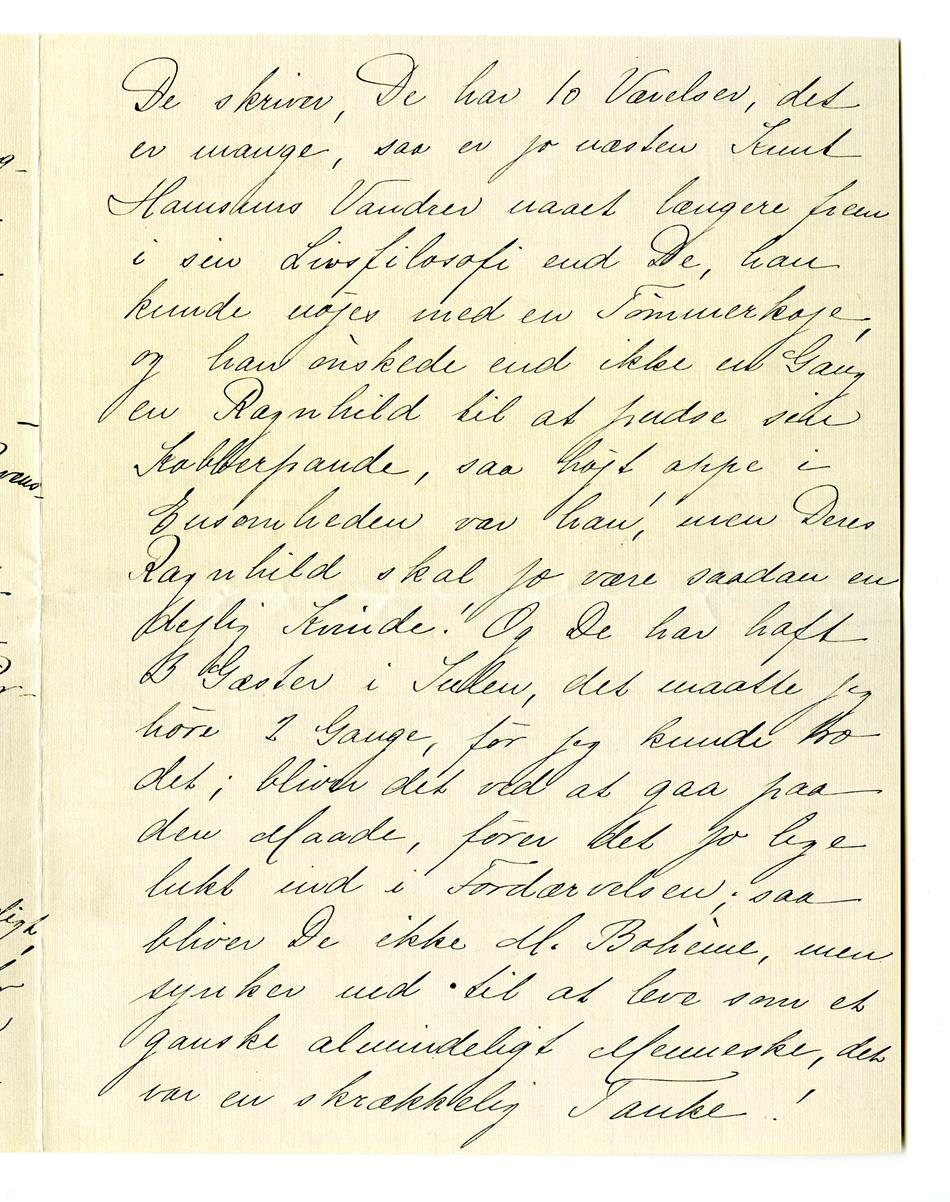 De skriver, De har 10 Værelser, det
er mange, saa er jo næsten Knut
Hamsuns Vandrer naaet længere frem
i sin Livsfilosofi end De, han
kunde nöjes med en Tömmerkoje,
og han önskede end ikke en Gang
en Ragnhild til at pudse sin
Kobberpande, saa höjt oppe i
Ensomheden var han, men Deres
Ragnhild skal jo være saadan en
dejlig Kvinde! Og De har haft
3 Gæster i Julen, det maatte jeg
höre 2 Gange, för jeg kunde tro
det; bliver det ved at gaa paa
den Maade, förer det jo lige
lukt ind i Fordærvelsen; saa
bliver De ikke M. Bohème, men
synker ned til at leve som et
ganske almindeligt Menneske, det
var en skrækkelig Tanke!